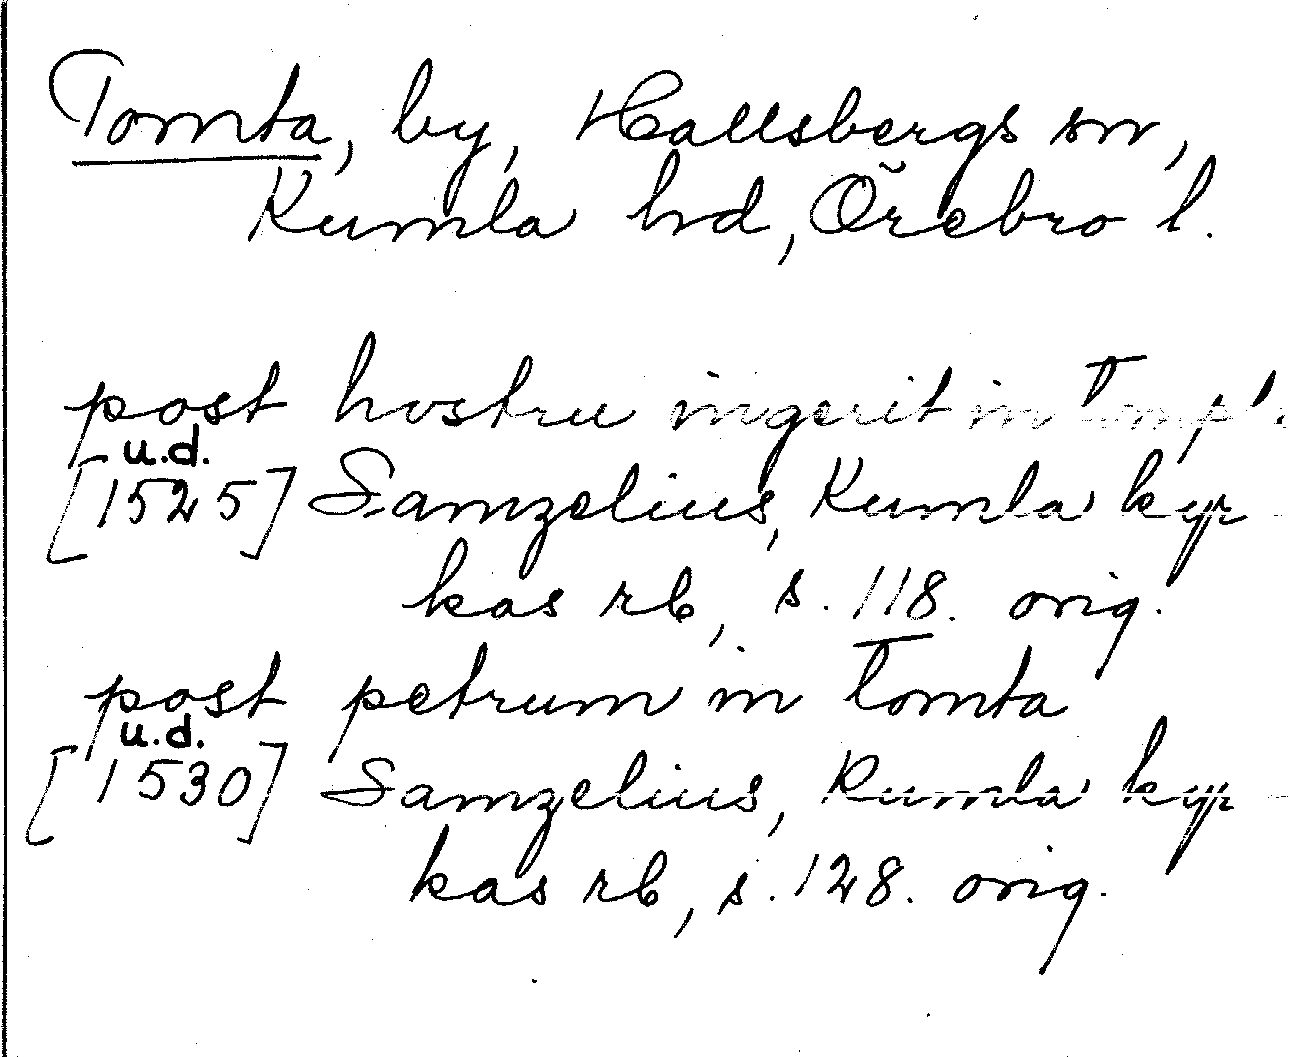 Tomta, by, Hallsbergs sn,
Kumla hd, Örebro l.
post hostru ingerit in
u.d.
[1525] Samzelius, Kumla kyr-
kas rb, s. 118. orig.
post petrum in Tomta
u.d.
[1530] Samzelius, Kumla kyr-
kas rb, s. 128. orig.